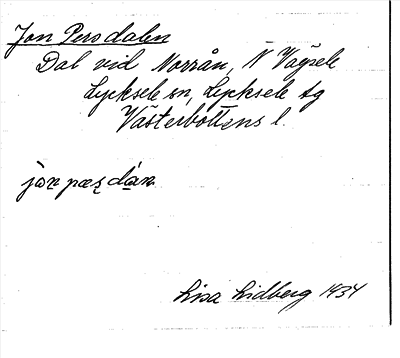 Jon Persdalen
Dal vid Norrån, N Vägsele
Lycksele sn, Lycksele tg
Västerbottens l.
jòn pæs̩ dán
Lisa Lidberg 1934